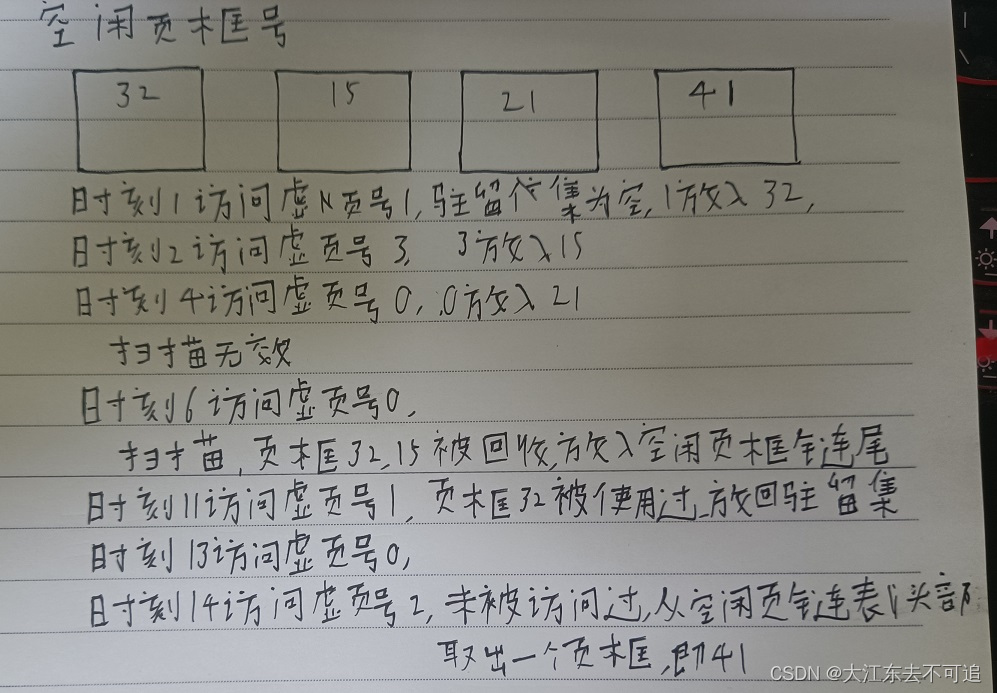 空闲页框号
32 15 21 41
时刻1访问虚页号1,驻留集为空,1放入32,
时刻2访问虚页号3, 3放入15
时刻4访问虚页号0,.0放入21
扫描无效
时刻6访问虚页号0,
扫描,页框32,15被回收,放入空闲页框链尾
时刻11访问虚页号1,页框32被使用过,放回驻留集
时刻13访问虚页号0,
时刻14访问虚页号2,未被访问过,从空闲页链表头部
取出一个页框,即41
CSDN @大江东去不可追